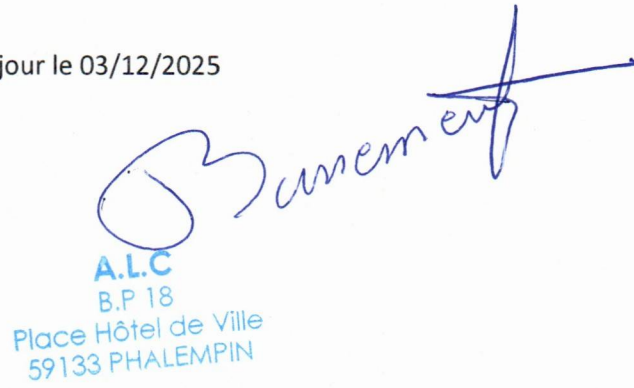 jour le 03/12/2025
A.L.C
B.P 18
Place Hôtel de Ville
59133 PHALEMPIN